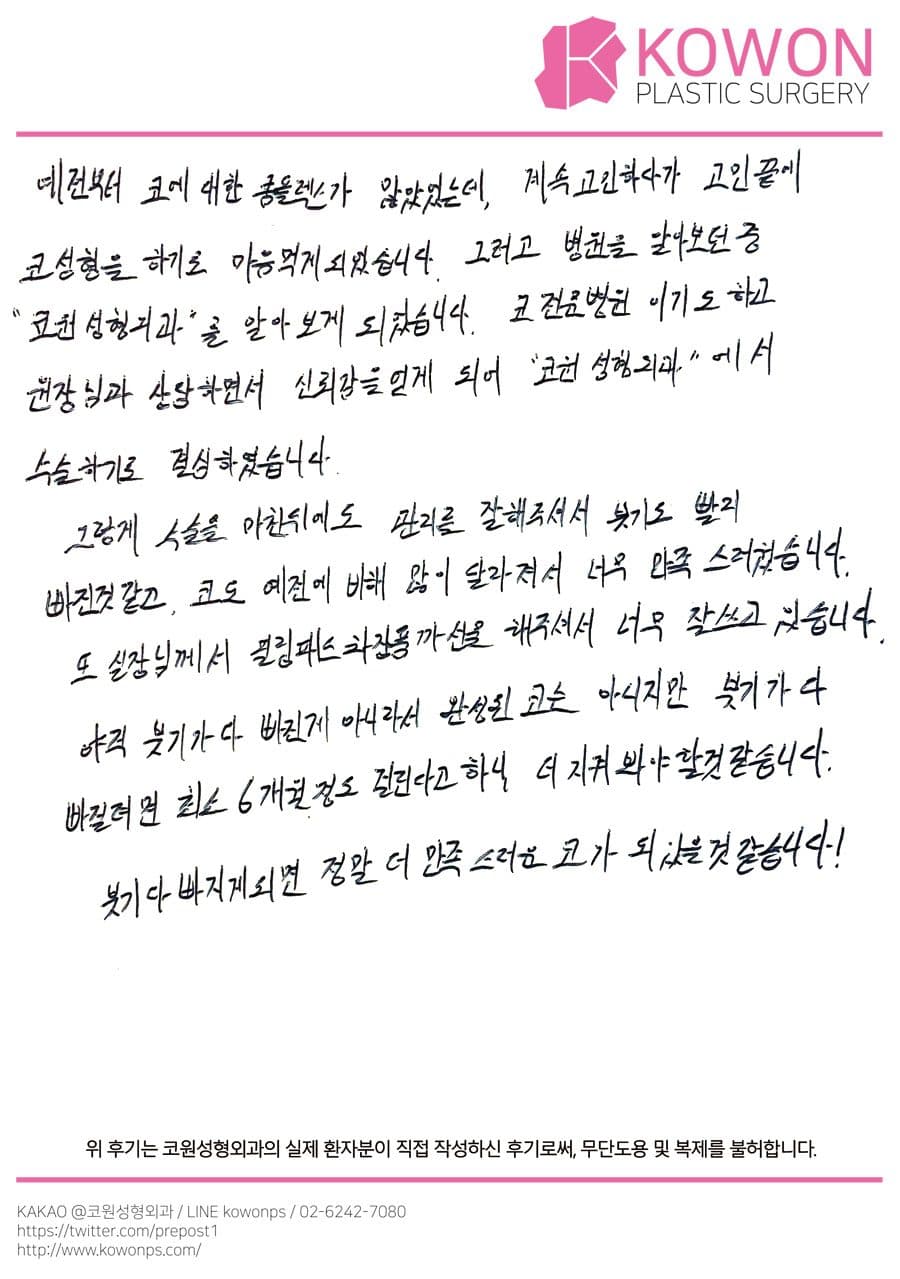 KOWON
PLASTIC SURGERY
예전부터 코에 대한 콤플렉스가 많았었는데, 계속고민하다가 고민끝에
코성형을 하기로 마음먹게되었습니다. 그러고 병원을 알아보던중
"코원성형외과"를 알아보게 되었습니다. 코전문병원 이기도 하고
원장님과 상담하면서 신뢰감을얻게 되어 "코원 성형외과"에서
수술하기로 결심하였습니다.
그렇게 수술을 마친뒤에도 관리를 잘해주셔서 붓기도 빨리
빠진것같고, 코도 예전에 비해 많이 달라져서 너무 만족스러웠습니다.
또 실장님께서 클림패스화장품까선물 해주셔서 너무 잘쓰고 있습니다.
아직 붓기가다 빠진게 아니라서 완성된 코는 아니지만 붓기가다
빠질려면 최소 6개월정도 걸린다고하니 더 지켜봐야할것같습니다.
붓기다빠지게되면 정말 더 만족스러운 코가 되있을것같습니다!
위 후기는 코원성형외과의 실제 환자분이 직접 작성하신 후기로써, 무단도용 및 복제를 불허합니다.
KAKAO @코원성형외과 / LINE kowonps / 02-6242-7080
https://twitter.com/prepost1
http://www.kowonps.com/